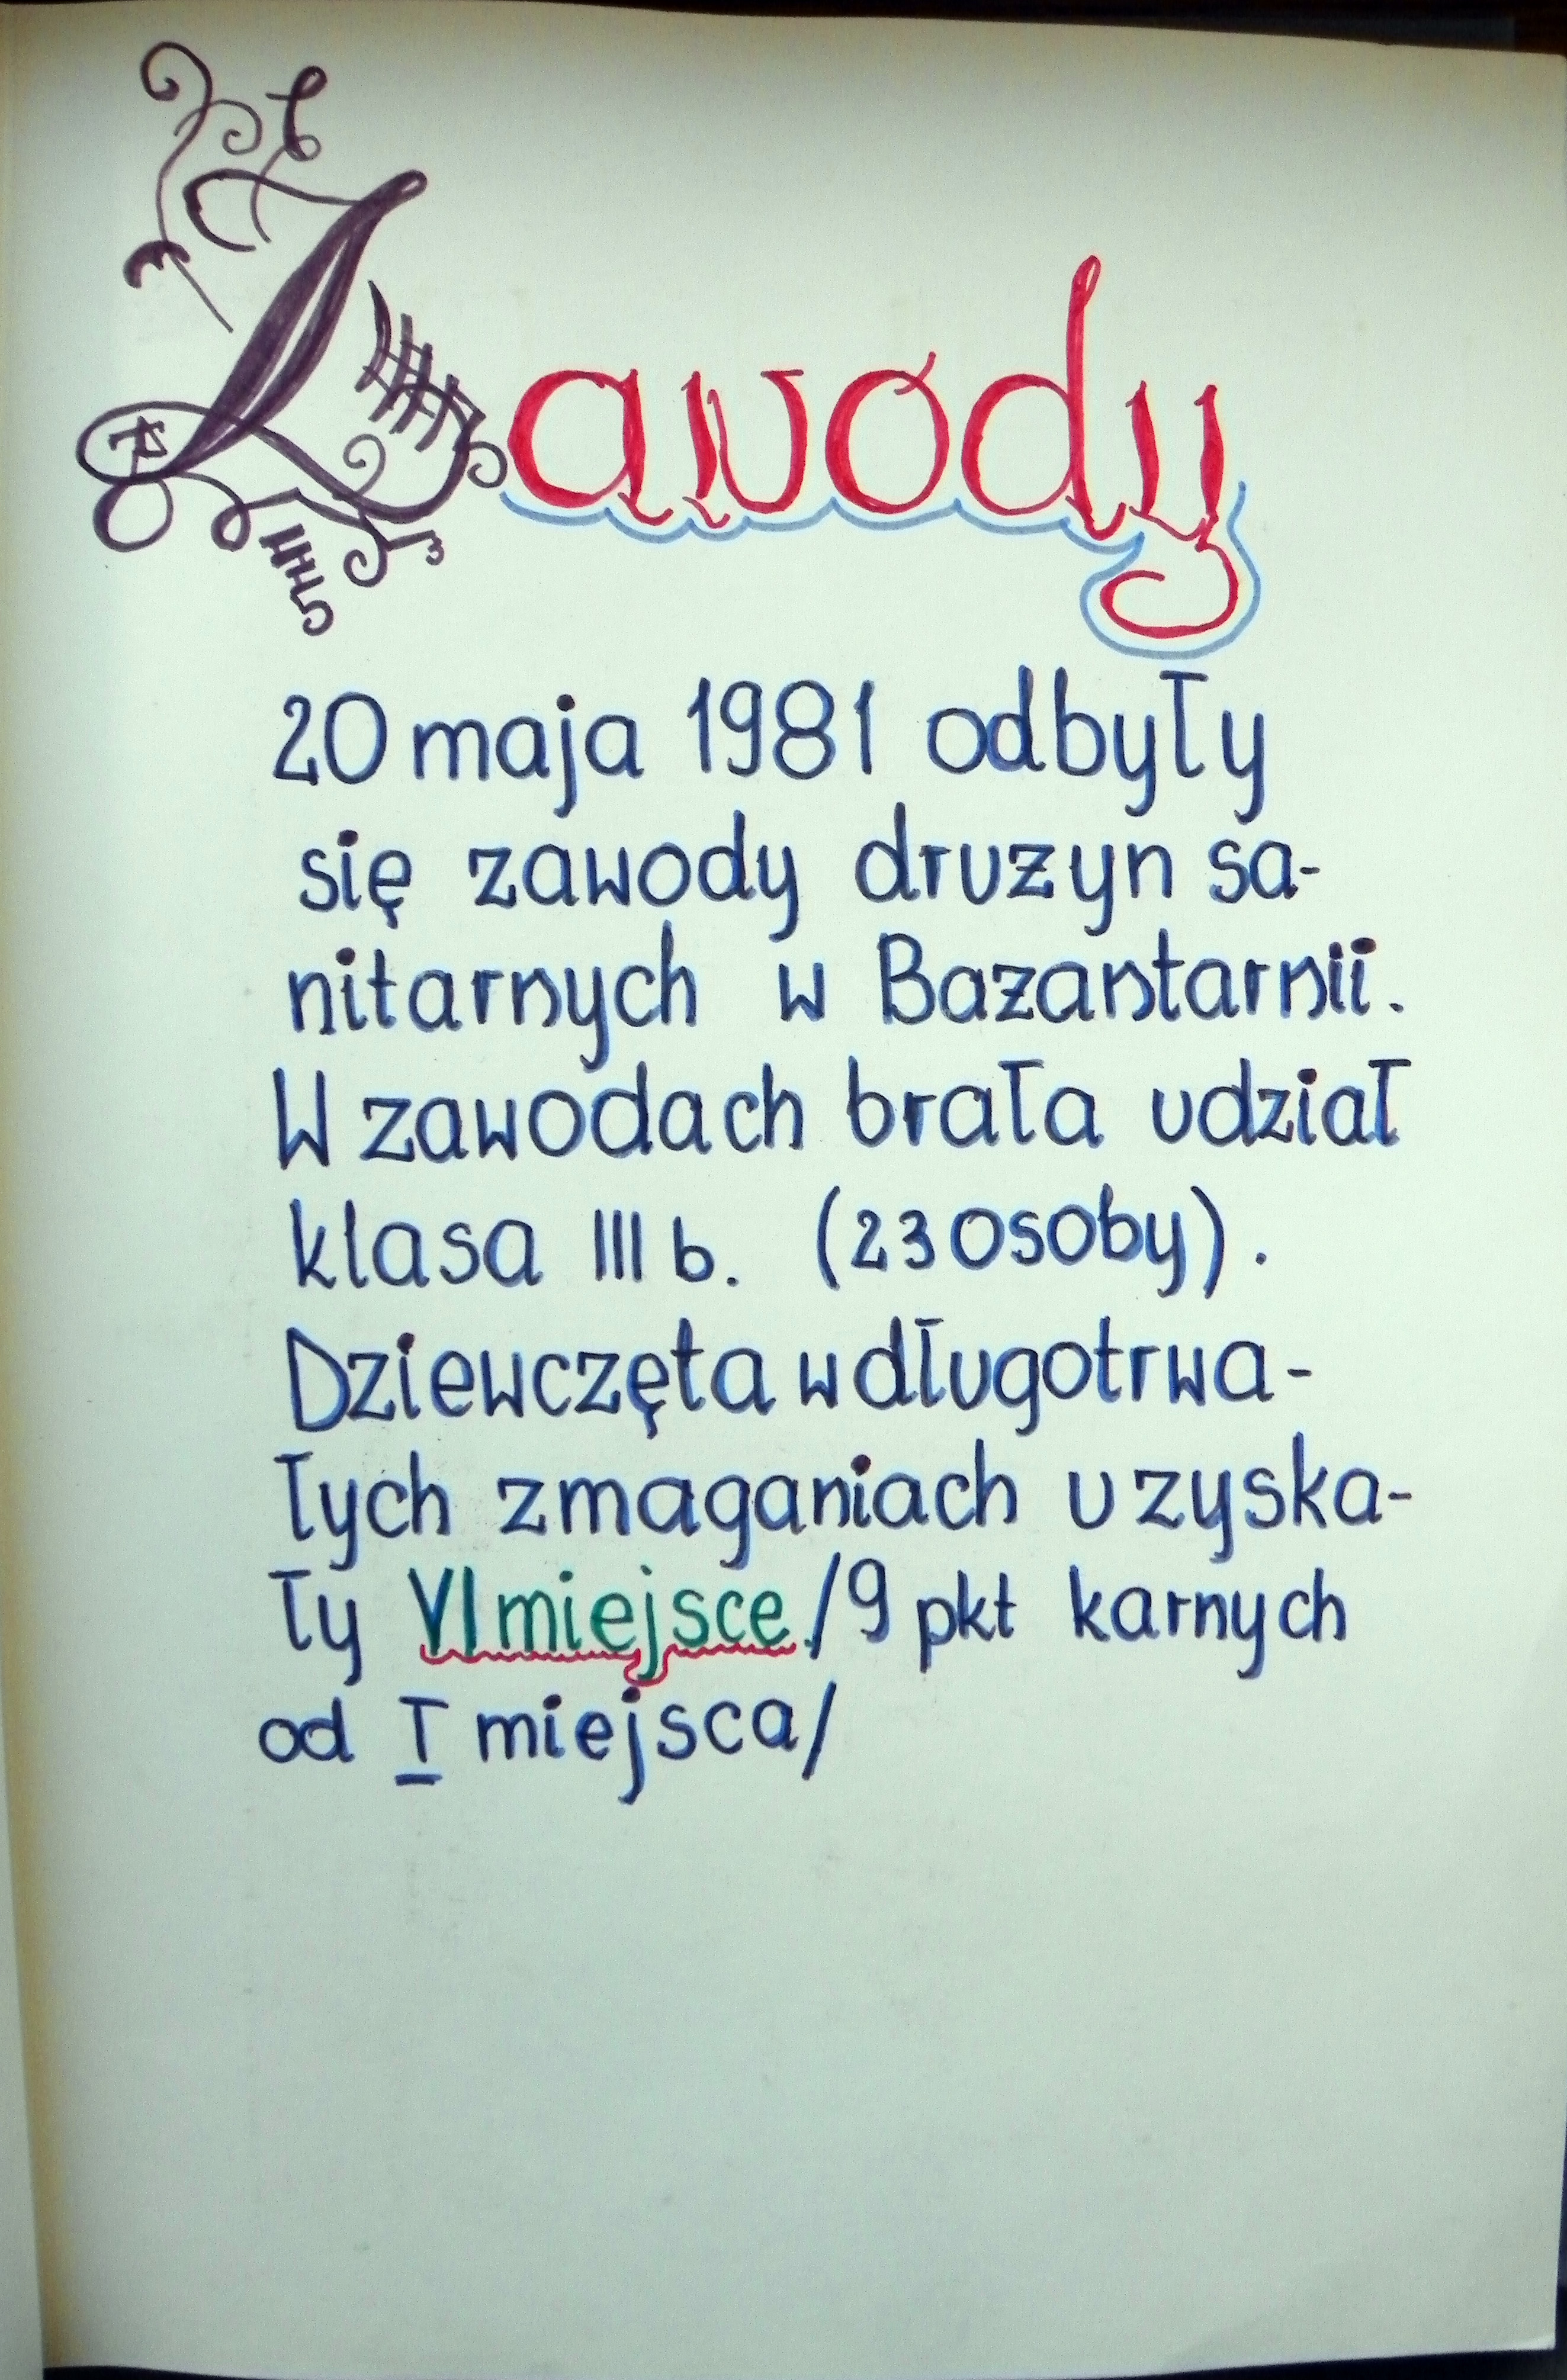 Zawody
20 maja 1981 odbyły
się zawody drużyn sa-
nitarnych w Bażantarnii.
W zawodach brała udział
klasa III b. (23 osoby).
Dziewczęta w długotrwa-
łych zmaganiach uzyska-
ły VI miejsce./9 pkt karnych
od I miejsca/